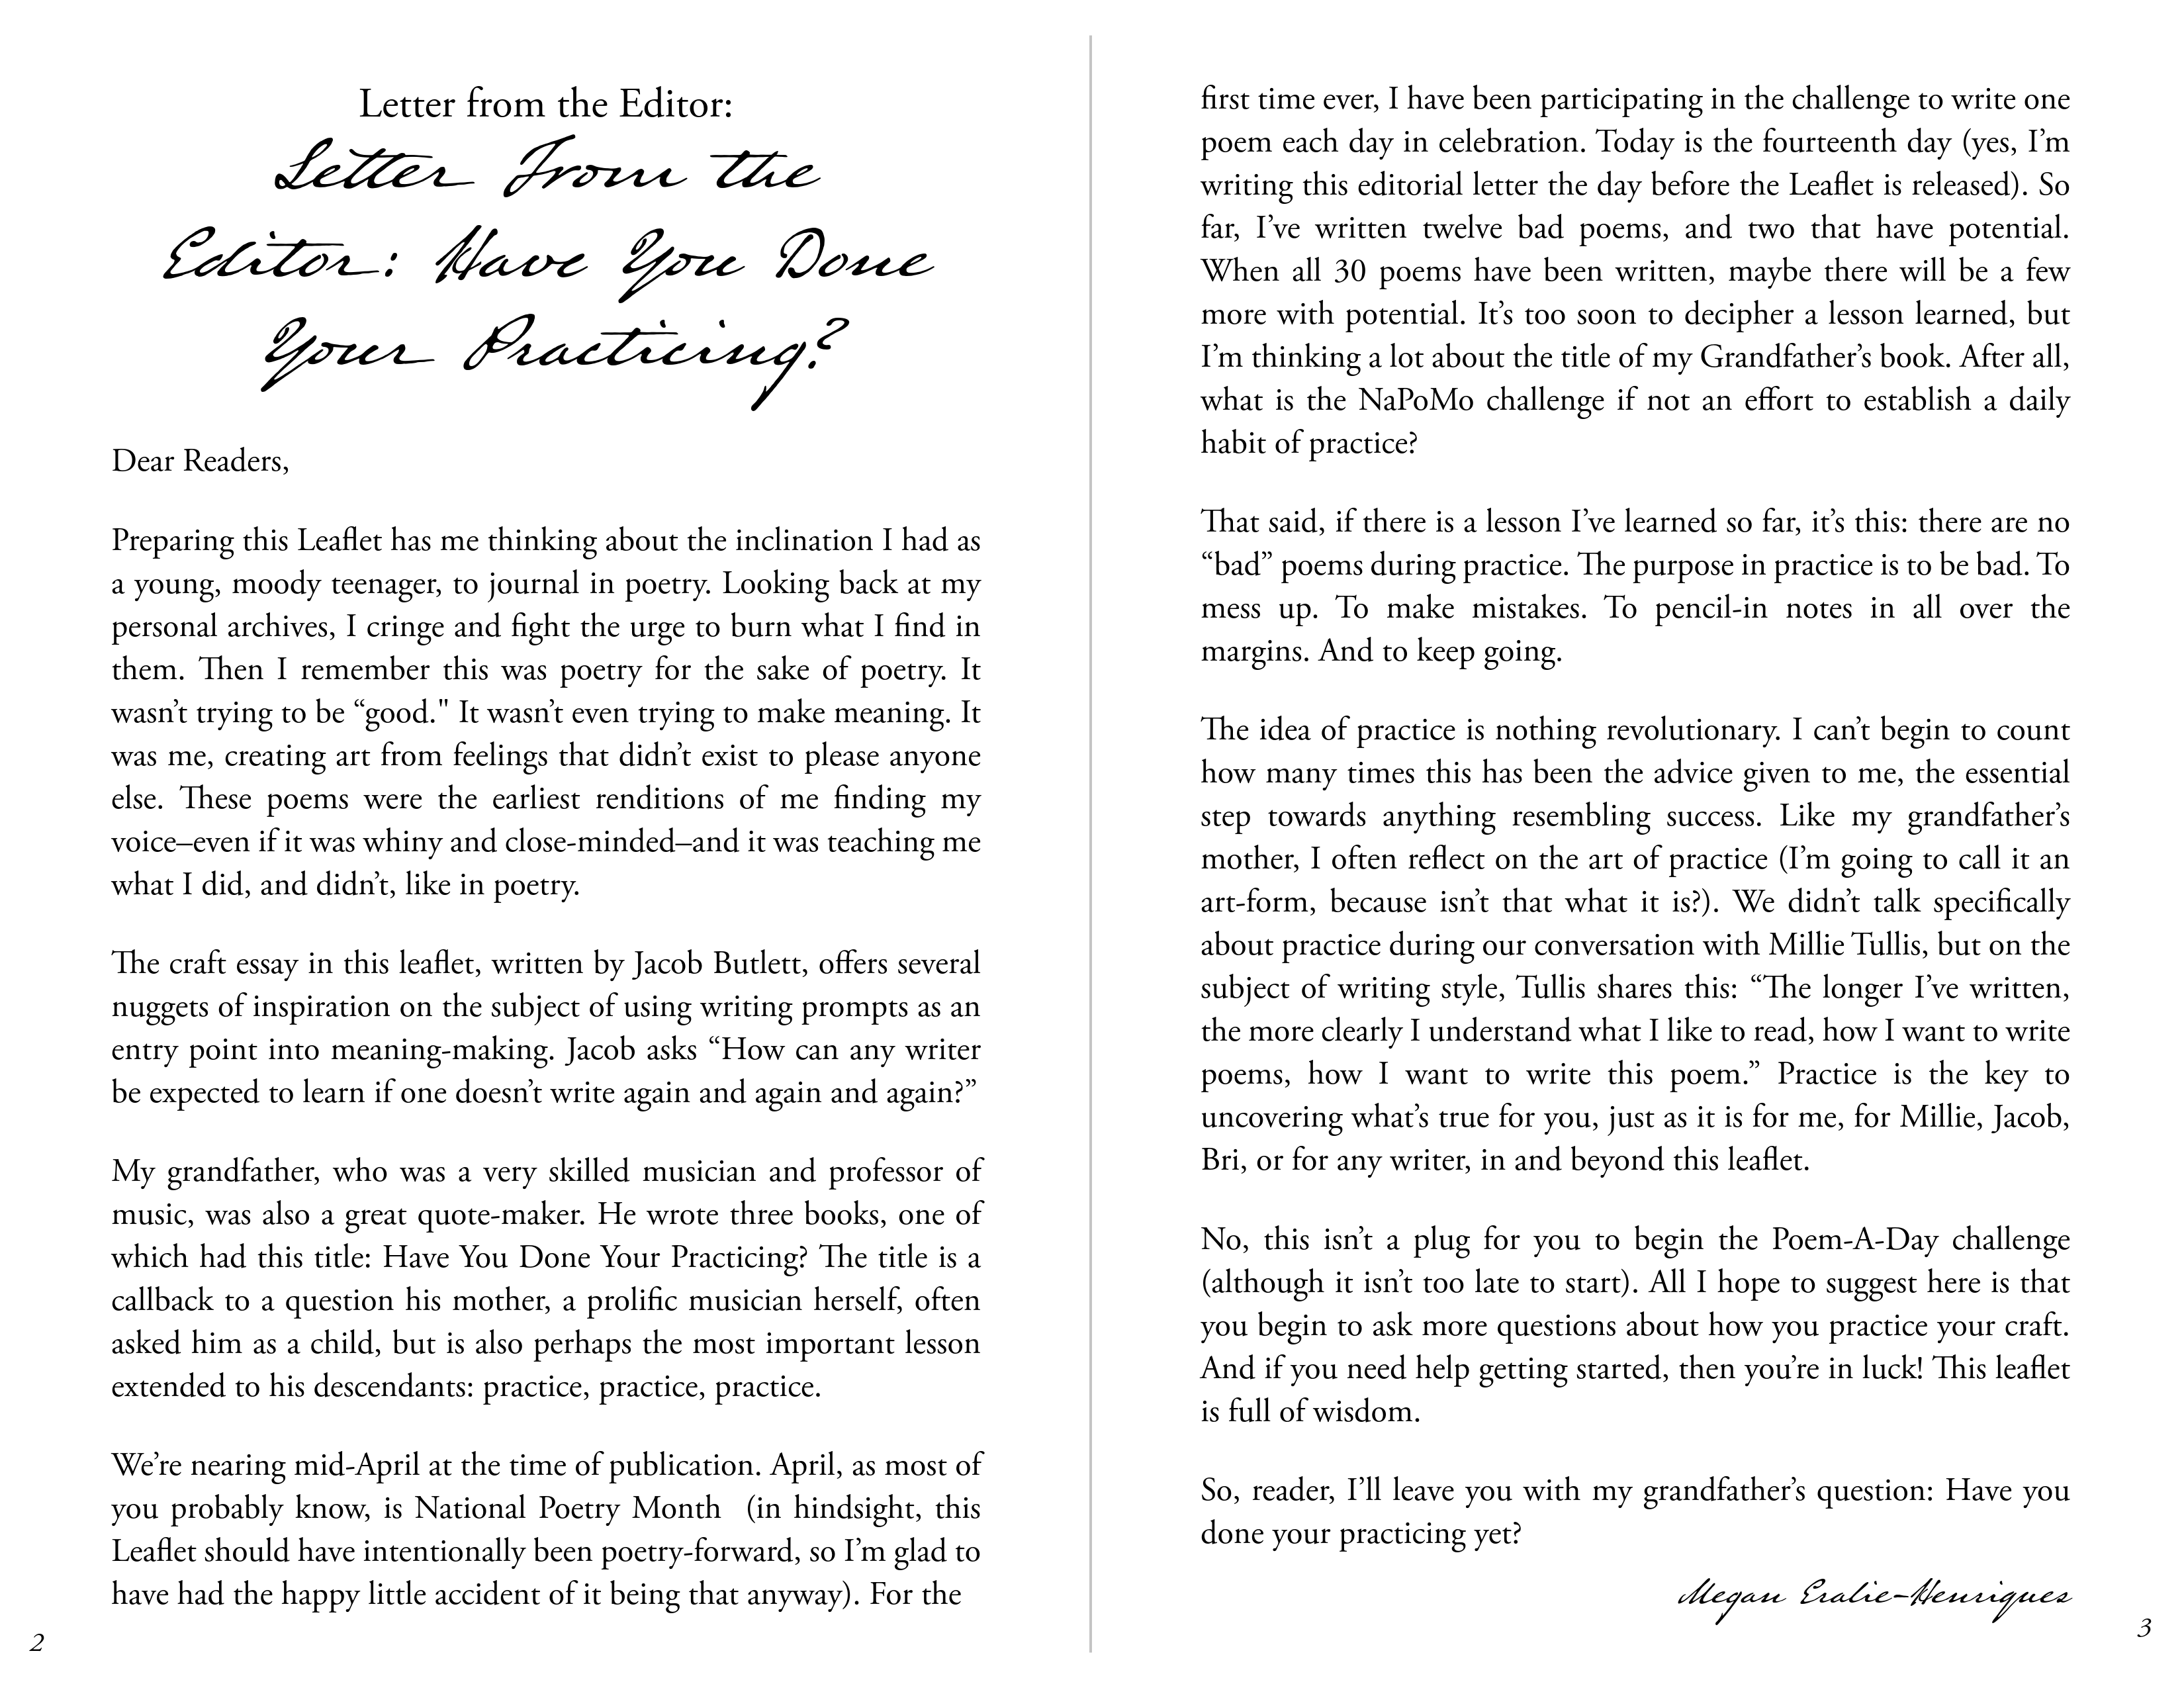 Letter from the Editor:
Letter From the
Editor: Have You Done
Your Practicing?
Dear Readers,
Preparing this Leaflet has me thinking about the inclination I had as
a young, moody teenager, to journal in poetry. Looking back at my
personal archives, I cringe and fight the urge to burn what I find in
them. Then I remember this was poetry for the sake of poetry. It
wasn’t trying to be “good." It wasn’t even trying to make meaning. It
was me, creating art from feelings that didn’t exist to please anyone
else. These poems were the earliest renditions of me finding my
voice–even if it was whiny and close-minded–and it was teaching me
what I did, and didn’t, like in poetry.
The craft essay in this leaflet, written by Jacob Butlett, offers several
nuggets of inspiration on the subject of using writing prompts as an
entry point into meaning-making. Jacob asks “How can any writer
be expected to learn if one doesn’t write again and again and again?”
My grandfather, who was a very skilled musician and professor of
music, was also a great quote-maker. He wrote three books, one of
which had this title: Have You Done Your Practicing? The title is a
callback to a question his mother, a prolific musician herself, often
asked him as a child, but is also perhaps the most important lesson
extended to his descendants: practice, practice, practice.
We’re nearing mid-April at the time of publication. April, as most of
you probably know, is National Poetry Month (in hindsight, this
Leaflet should have intentionally been poetry-forward, so I’m glad to
have had the happy little accident of it being that anyway). For the
2
first time ever, I have been participating in the challenge to write one
poem each day in celebration. Today is the fourteenth day (yes, I’m
writing this editorial letter the day before the Leaflet is released). So
far, I’ve written twelve bad poems, and two that have potential.
When all 30 poems have been written, maybe there will be a few
more with potential. It’s too soon to decipher a lesson learned, but
I’m thinking a lot about the title of my Grandfather’s book. After all,
what is the NaPoMo challenge if not an effort to establish a daily
habit of practice?
That said, if there is a lesson I’ve learned so far, it’s this: there are no
“bad” poems during practice. The purpose in practice is to be bad. To
mess up. To make mistakes. To pencil-in notes in all over the
margins. And to keep going.
The idea of practice is nothing revolutionary. I can’t begin to count
how many times this has been the advice given to me, the essential
step towards anything resembling success. Like my grandfather’s
mother, I often reflect on the art of practice (I’m going to call it an
art-form, because isn’t that what it is?). We didn’t talk specifically
about practice during our conversation with Millie Tullis, but on the
subject of writing style, Tullis shares this: “The longer I’ve written,
the more clearly I understand what I like to read, how I want to write
poems, how I want to write this poem.” Practice is the key to
uncovering what’s true for you, just as it is for me, for Millie, Jacob,
Bri, or for any writer, in and beyond this leaflet.
No, this isn’t a plug for you to begin the Poem-A-Day challenge
(although it isn’t too late to start). All I hope to suggest here is that
you begin to ask more questions about how you practice your craft.
And if you need help getting started, then you’re in luck! This leaflet
is full of wisdom.
So, reader, I’ll leave you with my grandfather’s question: Have you
done your practicing yet?
Megan Eralie-Henriques
3